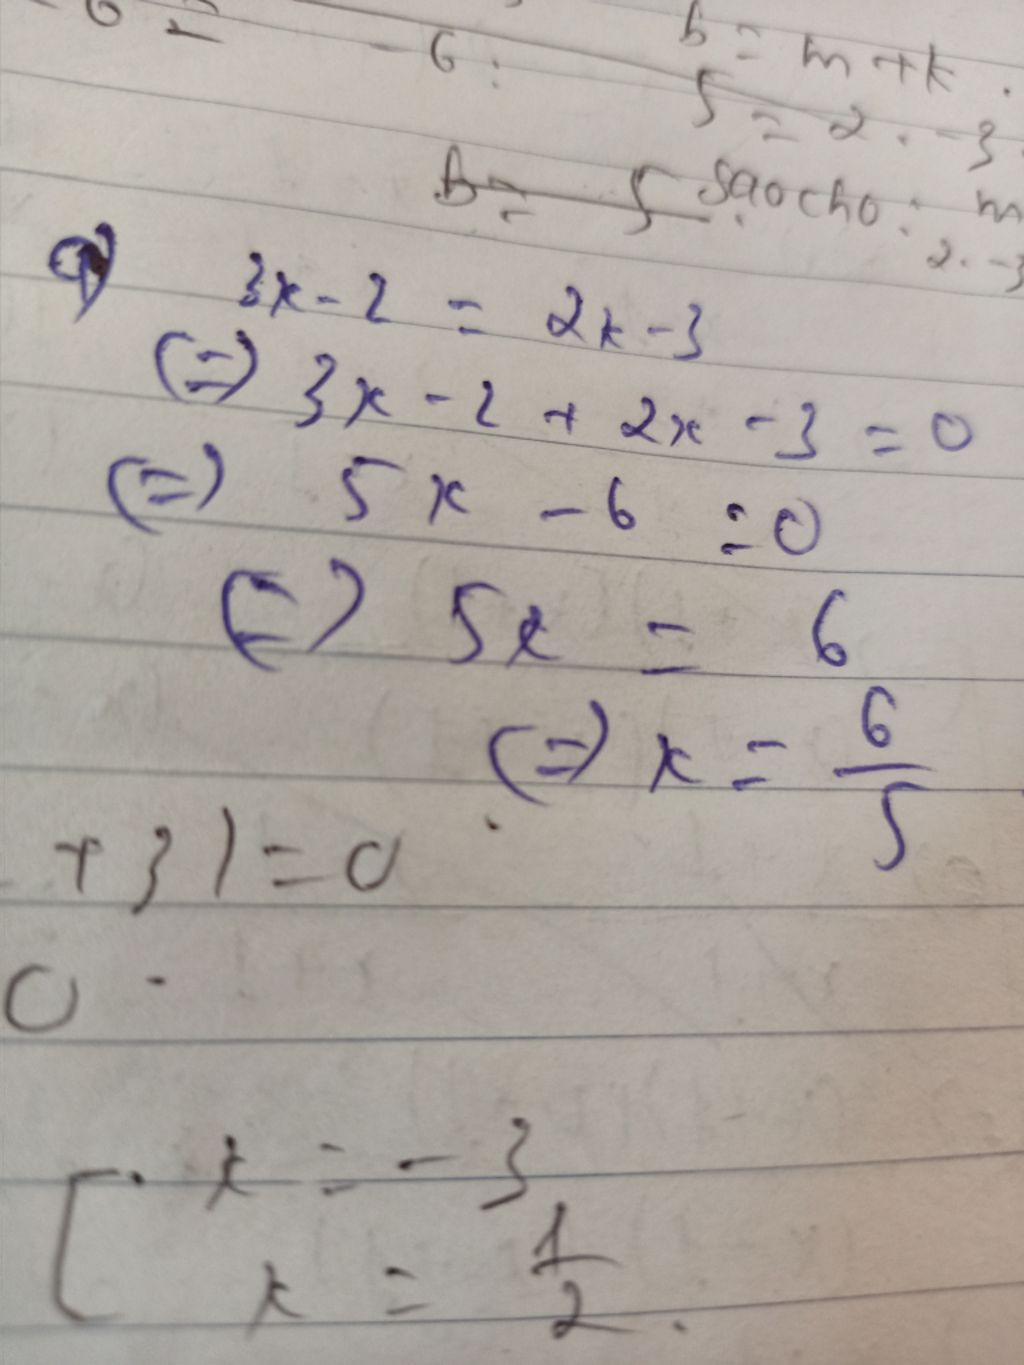 - 6 :
b = m + k .
5 = 2 . -3
b = 5 sao cho : m
2 . -3
a) 3x - 2 = 2x - 3
(=) 3x - 2 + 2x - 3 = 0
(=) 5x - 6 = 0
(=) 5x = 6
(=) x = 6/5
+ 3) = 0
0 .
[ x = -3
x = 1/2 .